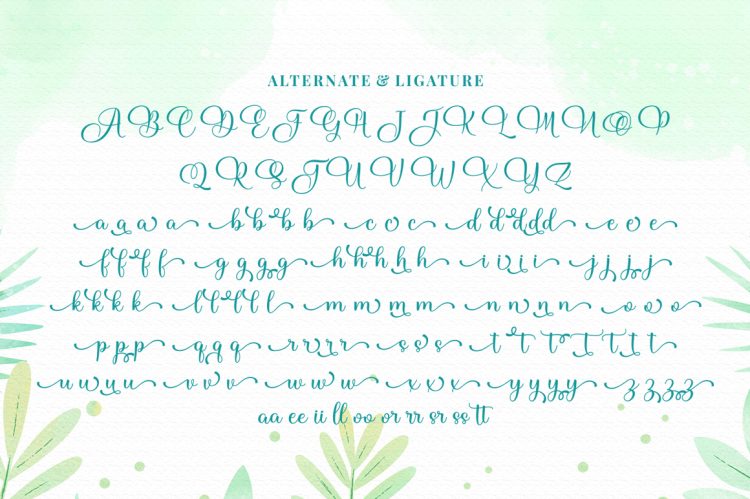 ALTERNATE & LIGATURE
A B C D E F G H I J K L M N O P
Q R S T U V W X Y Z
a a a a b b b b c c c d d d d d e e e
f f f f g g g g g h h h h h i i i i i j j j j
k k k k l l l l l l m m m m n n n n o o o
p p p p q q q r r r r r s s s t t t t t t t
u u u u u v v v w w w x x x y y y y y z z z z z
aa ee ii ll oo or rr sr ss tt